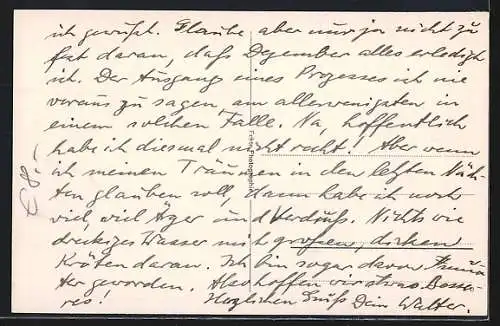 ich gewußt. Glaube aber nur ja nicht zu
fest daran, daß Dezember alles erledigt
ist. Der Ausgang eines Prozesses ist nie
voraus zu sagen, am allerwenigsten in
einem solchen Falle. Na, hoffentlich
habe ich diesmal nicht recht! Aber wenn
ich meinen Träumen in den letzten Näch-
ten glauben soll, dann habe ich noch
viel, viel Ärger und Verdruß. Nichts wie
dreckiges Wasser mit großen, dicken
Kröten daran. Ich bin sogar davon
ter geworden. Also hoffen wir etwas Besse-
res! Herzlichen Gruß Dein Walter.